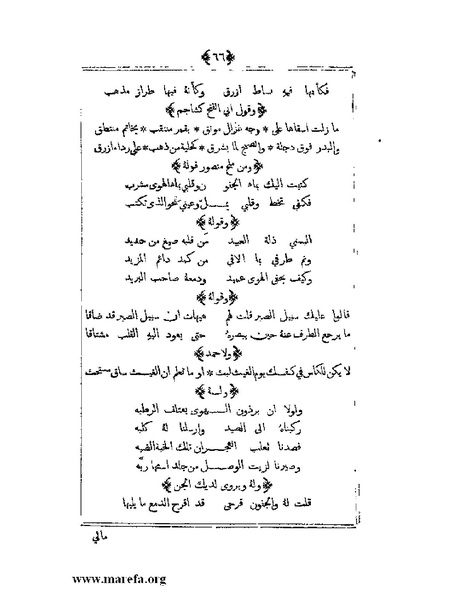 ﴿٦٦﴾
فكأنها فيه بساط ازرق وكأنهٔ فيها طراز مذهب
﴿وقول ابي الفتح كشاجم﴾
ما زلت اسقاها على * وجه غزال مونق * بقمر منتقب * بخاتم منتطق
والبدر فوق دجلة * والصبح لما يشرق * كحلية من ذهب * على رداء ازرق
﴿ومن ملح منصور قولهٔ﴾
كتبت اليك بماء الجفون وقلبي بماء الهوى مشرب
فكفي تخط وقلبي يمل وعيني تمحو الذي تكتب
﴿وقولهٔ﴾
البسني ذلة العبيد من قلبه صيغ من حديد
ونم طرفي بما الاقي من كمد دائم المزيد
وكيف يخفى الهوى عميد ودمعهٔ صاحب البريد
﴿وقولهٔ﴾
قالوا عليك سبيل الصبر قلت لهم هيهات ان سبيل الصبر قد ضاقا
ما يرجع الطرف عنهٔ حين يبصرهٔ حتى يعود اليهِ القلب مشتاقا
﴿ولاحمد﴾
لا يكن للكأس في كفك يوم الغيث لبث * او ما تعلم ان الغيث ساق مستحث
﴿وله﴾
ولولا ان برذون الهوى يعتلف الرطبه
ركبناهٔ الى الصيد وارسلنا لهٔ كلبه
فصدنا ثعلب الهجران تلك الخبة الضبه
وصيرنا لزيت الوصل من جلد استها ربّه
﴿ولهٔ ويروى لديك الجن﴾
قلت لهٔ والجفون قرحى قد اقرح الدمع ما يليها
مالي
www.marefa.org